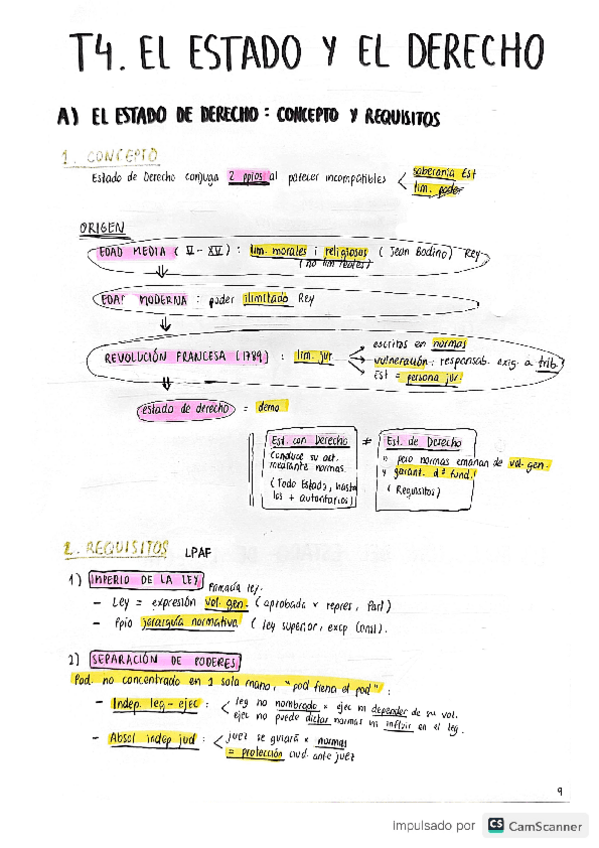 T4. EL ESTADO Y EL DERECHO
A) EL ESTADO DE DERECHO: CONCEPTO Y REQUISITOS
1. CONCEPTO
Estado de Derecho conjuga 2 ppios al parecer incompatibles < soberanía Est
lim. poder
ORIGEN
EDAD MEDIA (V-XV): lim. morales i religiosos (Jean Bodino) Rey
(no lim reales)
EDAD MODERNA: poder ilimitado Rey
REVOLUCIÓN FRANCESA (1789): lim. jur
escritos en normas
vulneración: responsab. exig. a trib.
Est = persona jur.
estado de derecho = demo
Est. con Derecho ≠ Est. de Derecho
Conduce su act. mediante normas.
(Todo Estado, hasta los + autoritarios)
" pero normas emanan de vol. gen.
y garant. dº fund.
(Requisitos)
2. REQUISITOS LPAF
1) IMPERIO DE LA LEY Primacía ley.
- Ley = expresión vol. gen. (aprobada x repres, Parl)
- Ppio jerarquía normativa (ley superior, excp Const).
2) SEPARACIÓN DE PODERES
Pod. no concentrado en 1 sola mano, "pod frena el pod":
- Indep. leg-ejec: < leg no nombrado x ejec ni depender de su vol.
ejec no puede dictar normas ni influir en el leg.
- Absol indep jud: < juez se guiará x normas
= protección ciud. ante juez
9
Impulsado por CS CamScanner